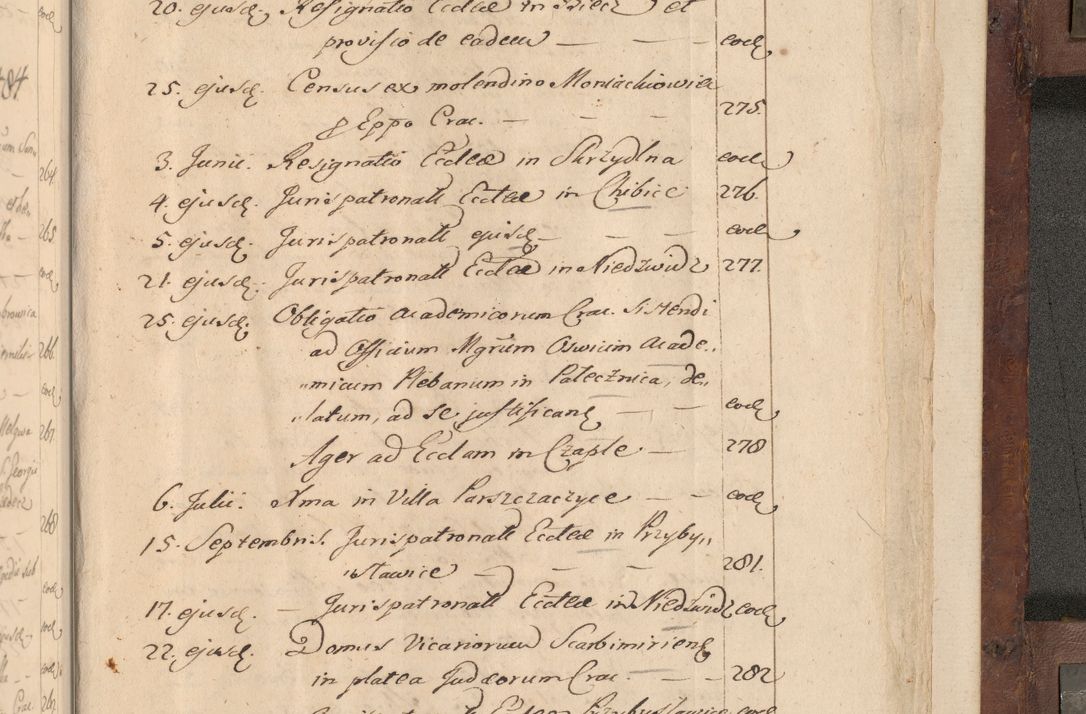 20. ejusd. Resignatio Eccleæ in Biecz et
provisio de eadem — — — eod
25. ejusd. Census ex molendino Moniachiowice
p Eppo Crac. — — — 275.
3. Junii. Resignatio Eccleæ in Skrzydlna eod
4. ejusd. Jurispatronatt Eccleæ in Chibice 276.
5. ejusd. Jurispatronatt ejusd — — — eod
21. ejusd. Jurispatronatt Eccleæ in Niedzwidz 277.
25. ejusd. Obligatio Academicorum Crac. sistendi
ad Officium Mgrum Oswicim Acade„
„micum Plebanum in Palecznica, de„
„latum, ad se justificand — — eod
Ager ad Ecclam in Czaple — 278
6. Julii. Ama in Villa Parszczaczyce — — eod
15. Septembris. Jurispatronatt Eccleæ in Przyby„
„sławice — — — 281.
17. ejusd. — Jurispatronatt Eccleæ in Niedzwidz eod
22. ejusd. Domus Vicariorum Scarbimiriens
in platea Judæorum Crac. — — 282
264
265
eod
266
eod
267
268
eod
eod
eod